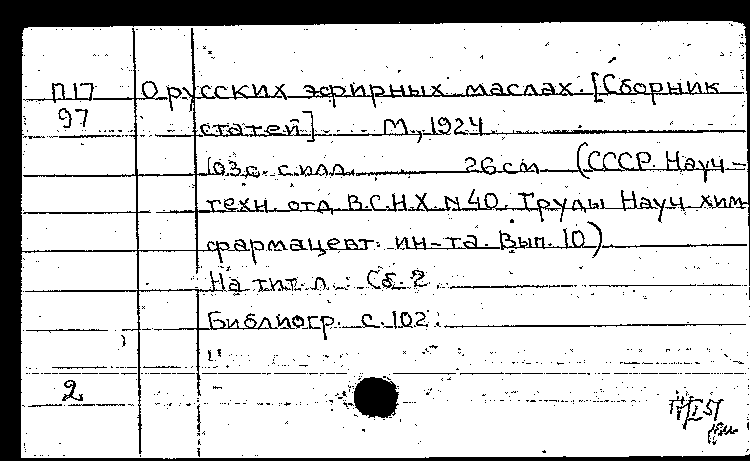 П17 О русских эфирных маслах. [Сборник
97 статей] М., 1924
103 с. с илл. 26 см (СССР. Науч-
техн. отд. В.С.Н.Х. N 40. Труды Науч. хим
фармацевт. ин-та. Вып. 10)
На тит. л.: Сб. 2
Библиогр. с. 102.
2